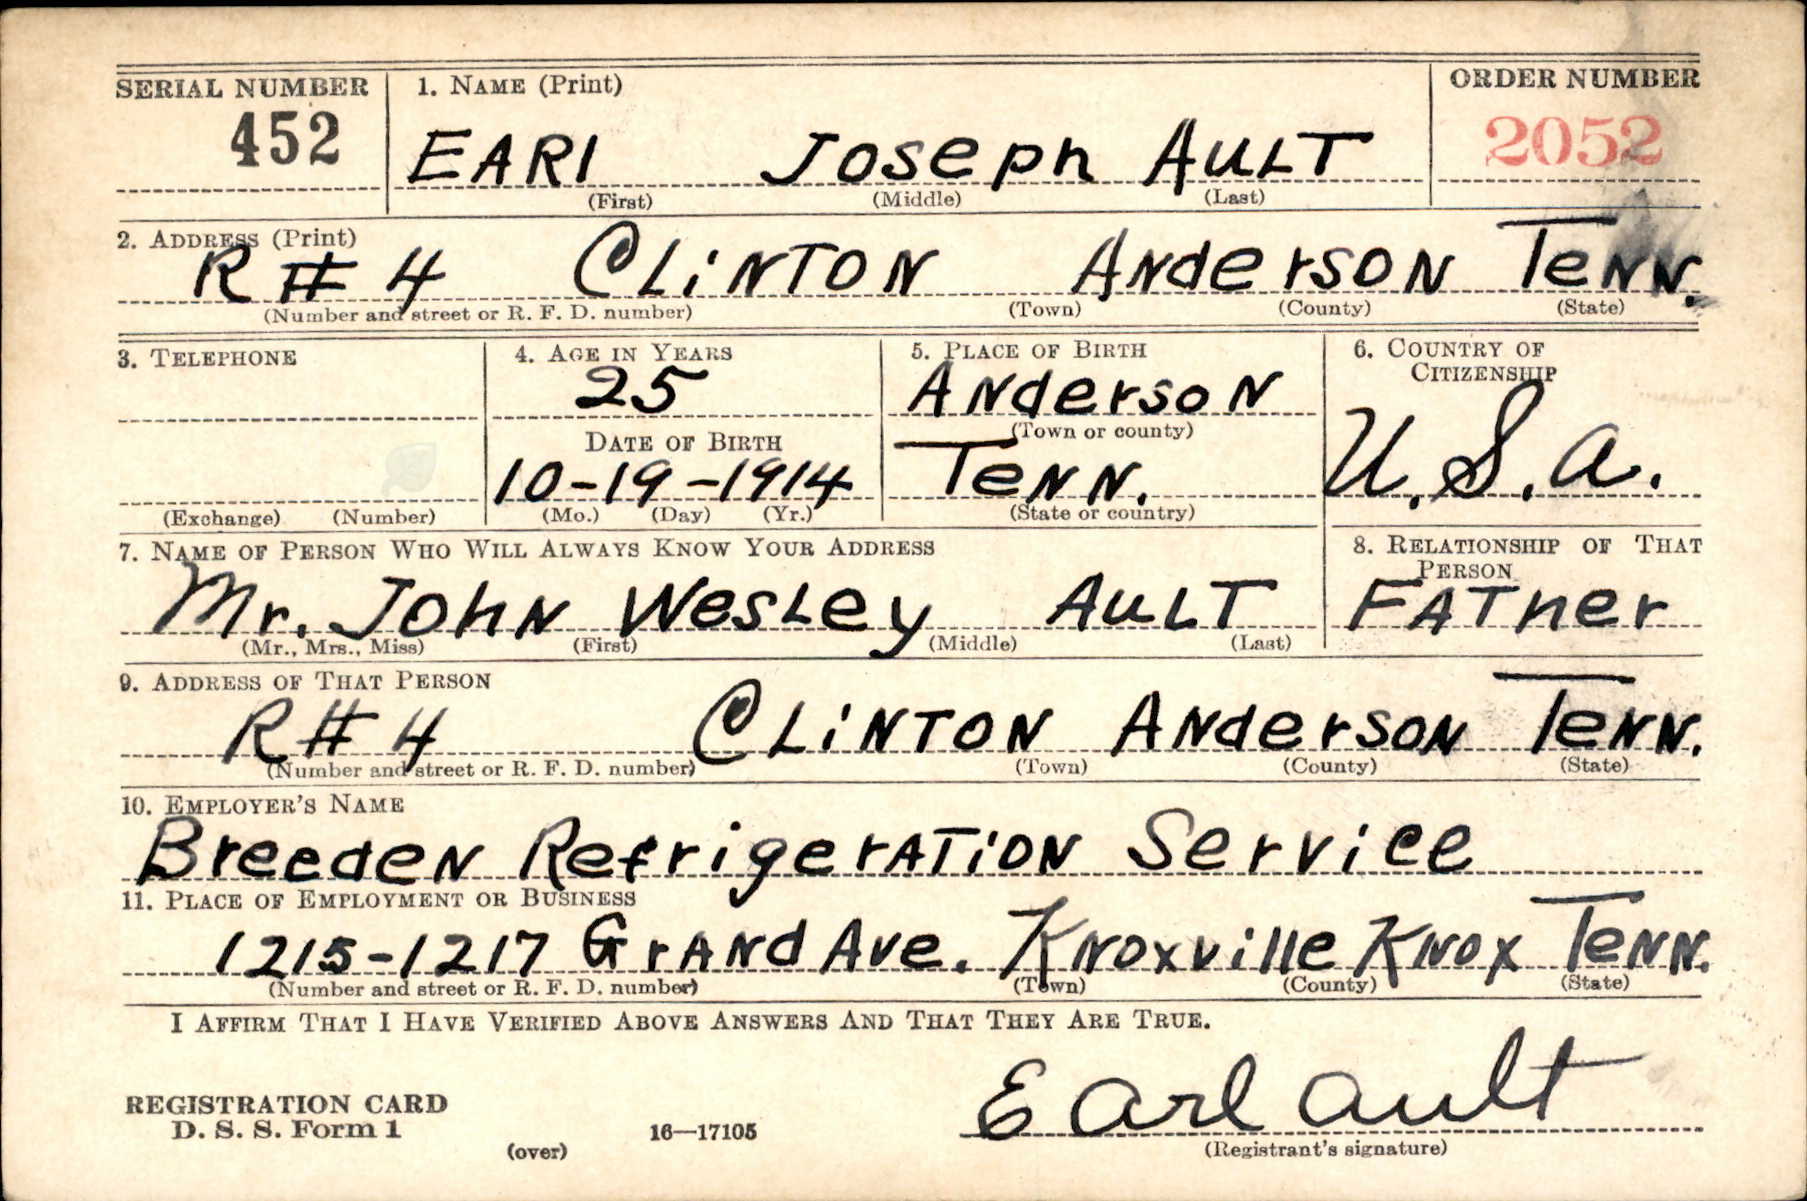 SERIAL NUMBER 1. NAME (Print) ORDER NUMBER
452 EARl Joseph AULT 2052
(First) (Middle) (Last)
2. ADDRESS (Print)
R # 4 CLiNTON ANdersON TeNN.
(Number and street or R. F. D. number) (Town) (County) (State)
3. TELEPHONE 4. AGE IN YEARS 5. PLACE OF BIRTH 6. COUNTRY OF CITIZENSHIP
25 ANdersoN
(Town or county)
DATE OF BIRTH U.S.A.
10-19-1914 TeNN.
(Exchange) (Number) (Mo.) (Day) (Yr.) (State or country)
7. NAME OF PERSON WHO WILL ALWAYS KNOW YOUR ADDRESS 8. RELATIONSHIP OF THAT PERSON
Mr. JohN WesLey AULT FATher
(Mr., Mrs., Miss) (First) (Middle) (Last)
9. ADDRESS OF THAT PERSON
R # 4 CLiNTON ANdersON TeNN.
(Number and street or R. F. D. number) (Town) (County) (State)
10. EMPLOYER'S NAME
BreedeN RefrigerATiON Service
11. PLACE OF EMPLOYMENT OR BUSINESS
1215-1217 GrANd Ave. Knoxville Knox TeNN.
(Number and street or R. F. D. number) (Town) (County) (State)
I AFFIRM THAT I HAVE VERIFIED ABOVE ANSWERS AND THAT THEY ARE TRUE.
Earl Ault
REGISTRATION CARD
D. S. S. Form 1 (over) 16—17105 (Registrant's signature)